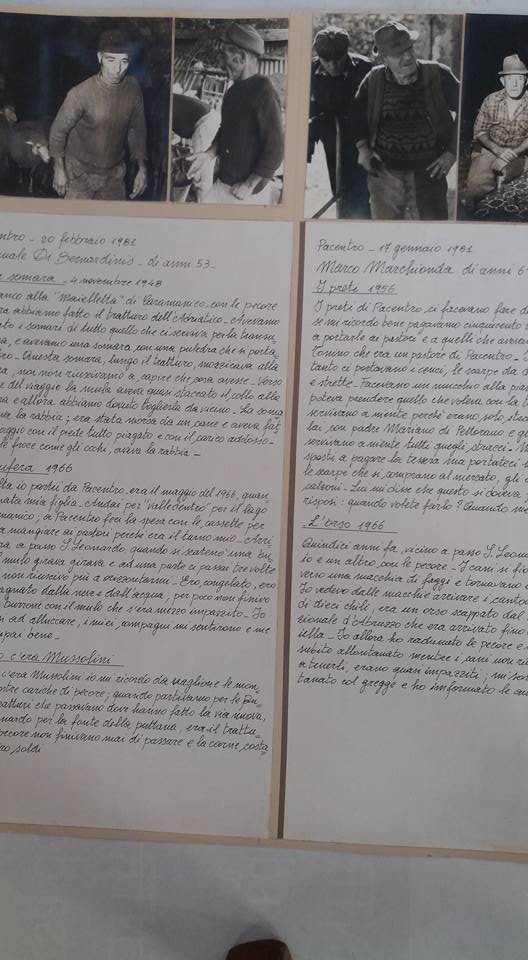 ntro - 20 febbraio 1981
uale Di Bernardinis - di anni 53 -
somara - 4 novembre 1948
anco alla "Maielletta" di Caramanico con le pecore
ra abbiamo fatto il tratturo dell'Adriatico - Avevamo
ato i somari di tutto quello che ci serviva per la transu
za, e avevamo una somara, con una puledra che si porta
ro - Questa somara, lungo il tratturo, mozzicava alla
ra, noi non riuscivamo a capire che cosa avesse - Verso
e del viaggio la mula aveva quasi staccato il collo alla
na e allora abbiamo dovuto toglierla da vicino - La soma
va la rabbia; era stata morsa da un cane e aveva fat
aggio con il piede tutto piagato e con il carico addosso -
le froce come gli occhi, aveva la rabbia -
ufera 1966
lta io partii da Pacentro, era il maggio del 1966, quan
nata mia figlia - Andai per "Valle dentro" per il lago
manico; a Pacentro feci la spesa con le cassette per
a mangiare ai pastori perchè era il turno mio - Arri
ra a passo S. Leonardo quando si scatenò una bu
mulo girava girava e ad una parte ci passai tre volte
non riuscivo più a orizzontarmi - Ero congelato, ero
agnato dalla neve e dall'acqua, per poco non finivo
burrone con il mulo che s'era mezzo impazzito - Io
ad alluccare, i miei compagni mi sentirono e me
mpai bene -
o c'era Mussolini
c'era Mussolini io mi ricordo da quaglione le mon
ostre cariche di pecore; quando partivamo per le Pu
ratturi che passavano dove hanno fatto la via nuova,
nardo per la fonte della puttana, era il trattu
pecore non finivano mai di passare e la carne costa
ro soldi
Pacentro - 17 gennaio 1981
Marco Marchionda di anni 6
I preti 1956
I preti di Pacentro, ci facevano fare d
se mi ricordo bene pagavamo cinquecento
a portarle ai pastori e a quelli che aveva
Tonino che era un pastore di Pacentro -
tanto ci portavano i cenci, le scarpe da
e strette - Facevano un mucchio alla pia
poteva prendere quello che voleva con la t
servivano a niente perchè erano solo strac
lai con padre Mariano di Pettorano e gl
servivano a niente tutti quegli stracci -
sposti a pagare la tessera ma portateci
le scarpe che si comprano al mercato, gli
caloni - Lui mi disse che questo si doveva
risposi: quando volete farlo? Quando me
L'orso 1966
Quindici anni fa, vicino a passo S. Leona
io e un altro, con le pecore - I cani si
verso una macchia di faggi e tornavano
Io vedevo dalle macchie arrivare i cantoni
di dieci chili, era un orso scappato dal
zionale d'Abruzzo che era arrivato fino
iella - Io allora ho radunato le pecore e
subito allontanato mentre i cani non
a tenerli, erano quasi impazziti; mi son
tanato col gregge e ho informato le